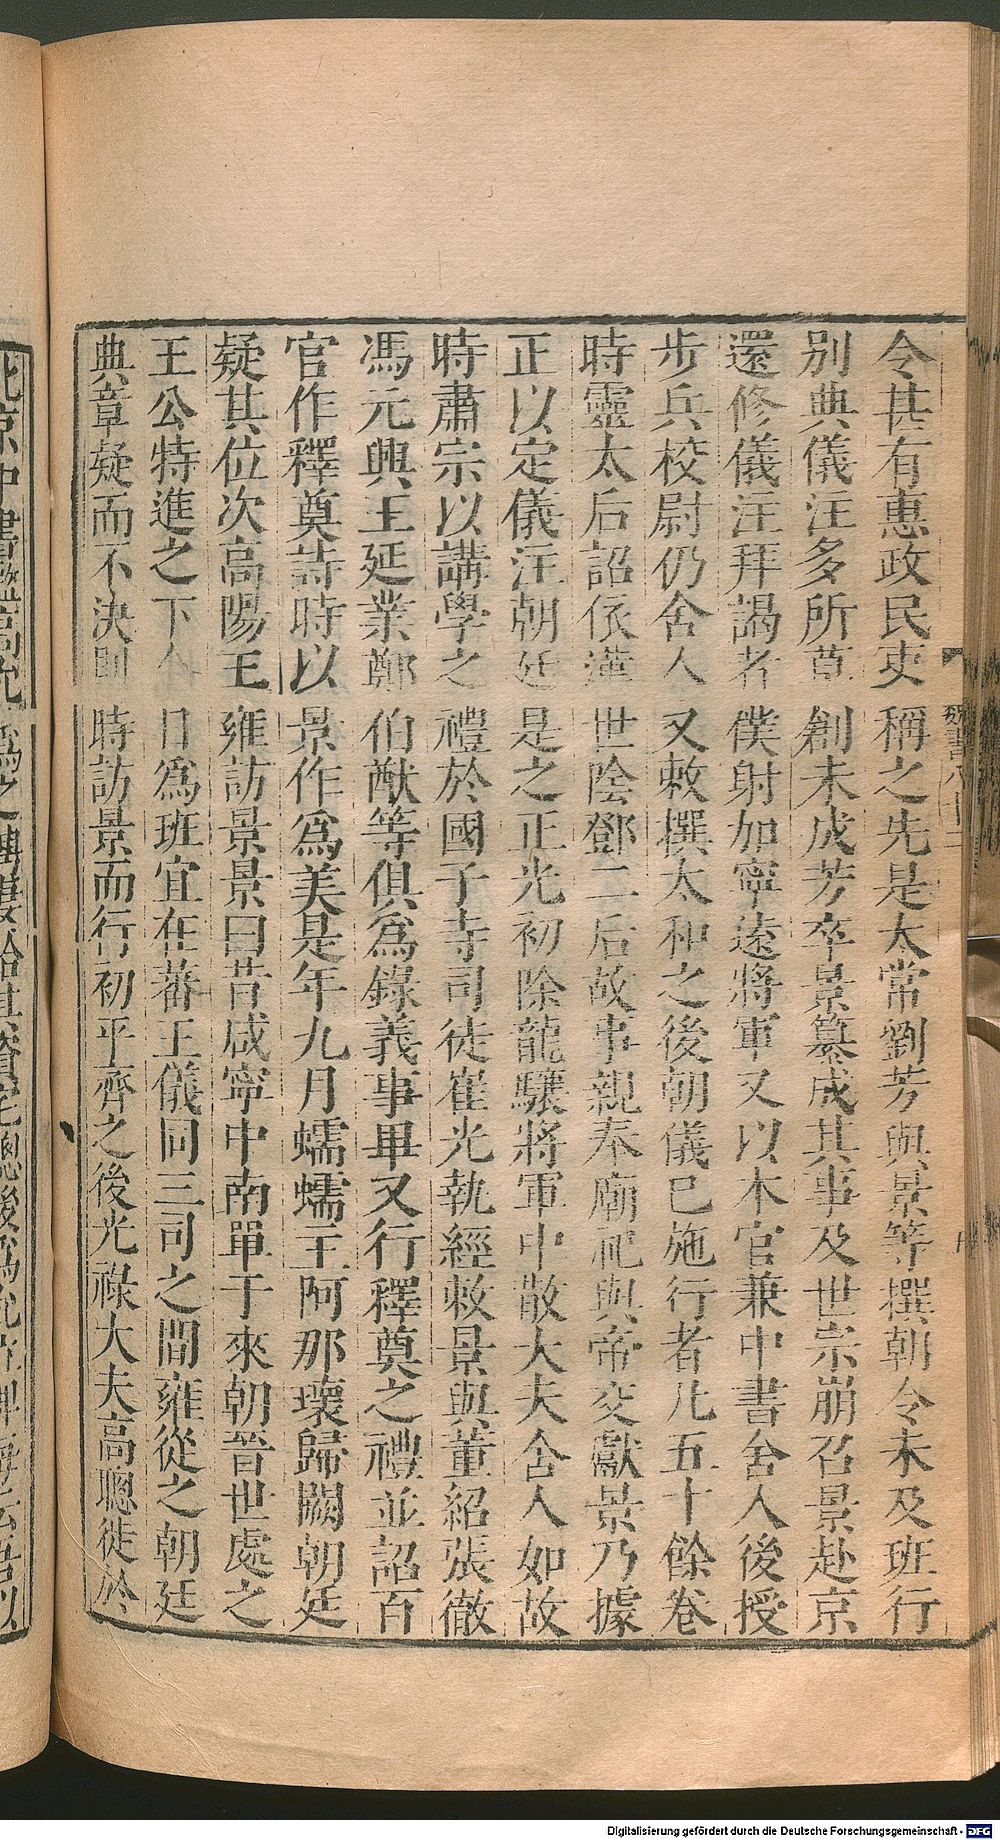 令甚有惠政民吏稱之先是太常劉芳與景等撰朝令未及班行
別典儀注多所草創未成芳卒景纂成其事及世宗崩召景赴京
還修儀注拜謁者僕射加寧遠將軍又以本官兼中書舍人後授
步兵校尉仍舍人又敕撰太和之後朝儀已施行者凡五十餘卷
時靈太后詔依漢世陰鄧二后故事親奉廟祀與帝交獻景乃據
正以定儀注朝廷是之正光初除龍驤將軍中散大夫舍人如故
時肅宗以講學之禮於國子寺司徒崔光執經敕景與董紹張徹
馮元興王延業鄭伯猷等俱為錄義事畢又行釋奠之禮並詔百
官作釋奠詩時以景作為美是年九月蠕蠕王阿那瓌歸闕朝廷
疑其位次高陽王雍訪景景曰昔咸寧中南單于來朝晉世處之
王公特進之下今日為班宜在蕃王儀同三司之間雍從之朝廷
典章疑而不決則時訪景而行初平齊之後光祿大夫高聰徙於
北京中書監高允為之娉妻給其資宅聰後為允立碑每云吾以
Digitalisierung gefördert durch die Deutsche Forschungsgemeinschaft - DFG